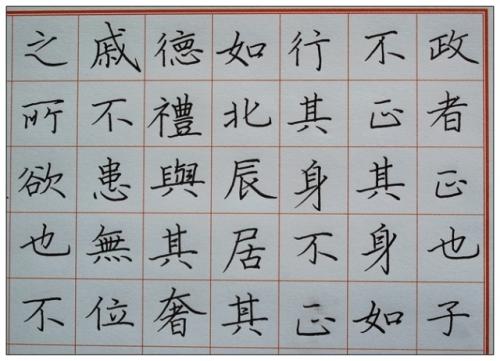 政者正也子
不正其身如
行其身不正
如北辰居其
德禮與其奢
戚不患無位
之所欲也不